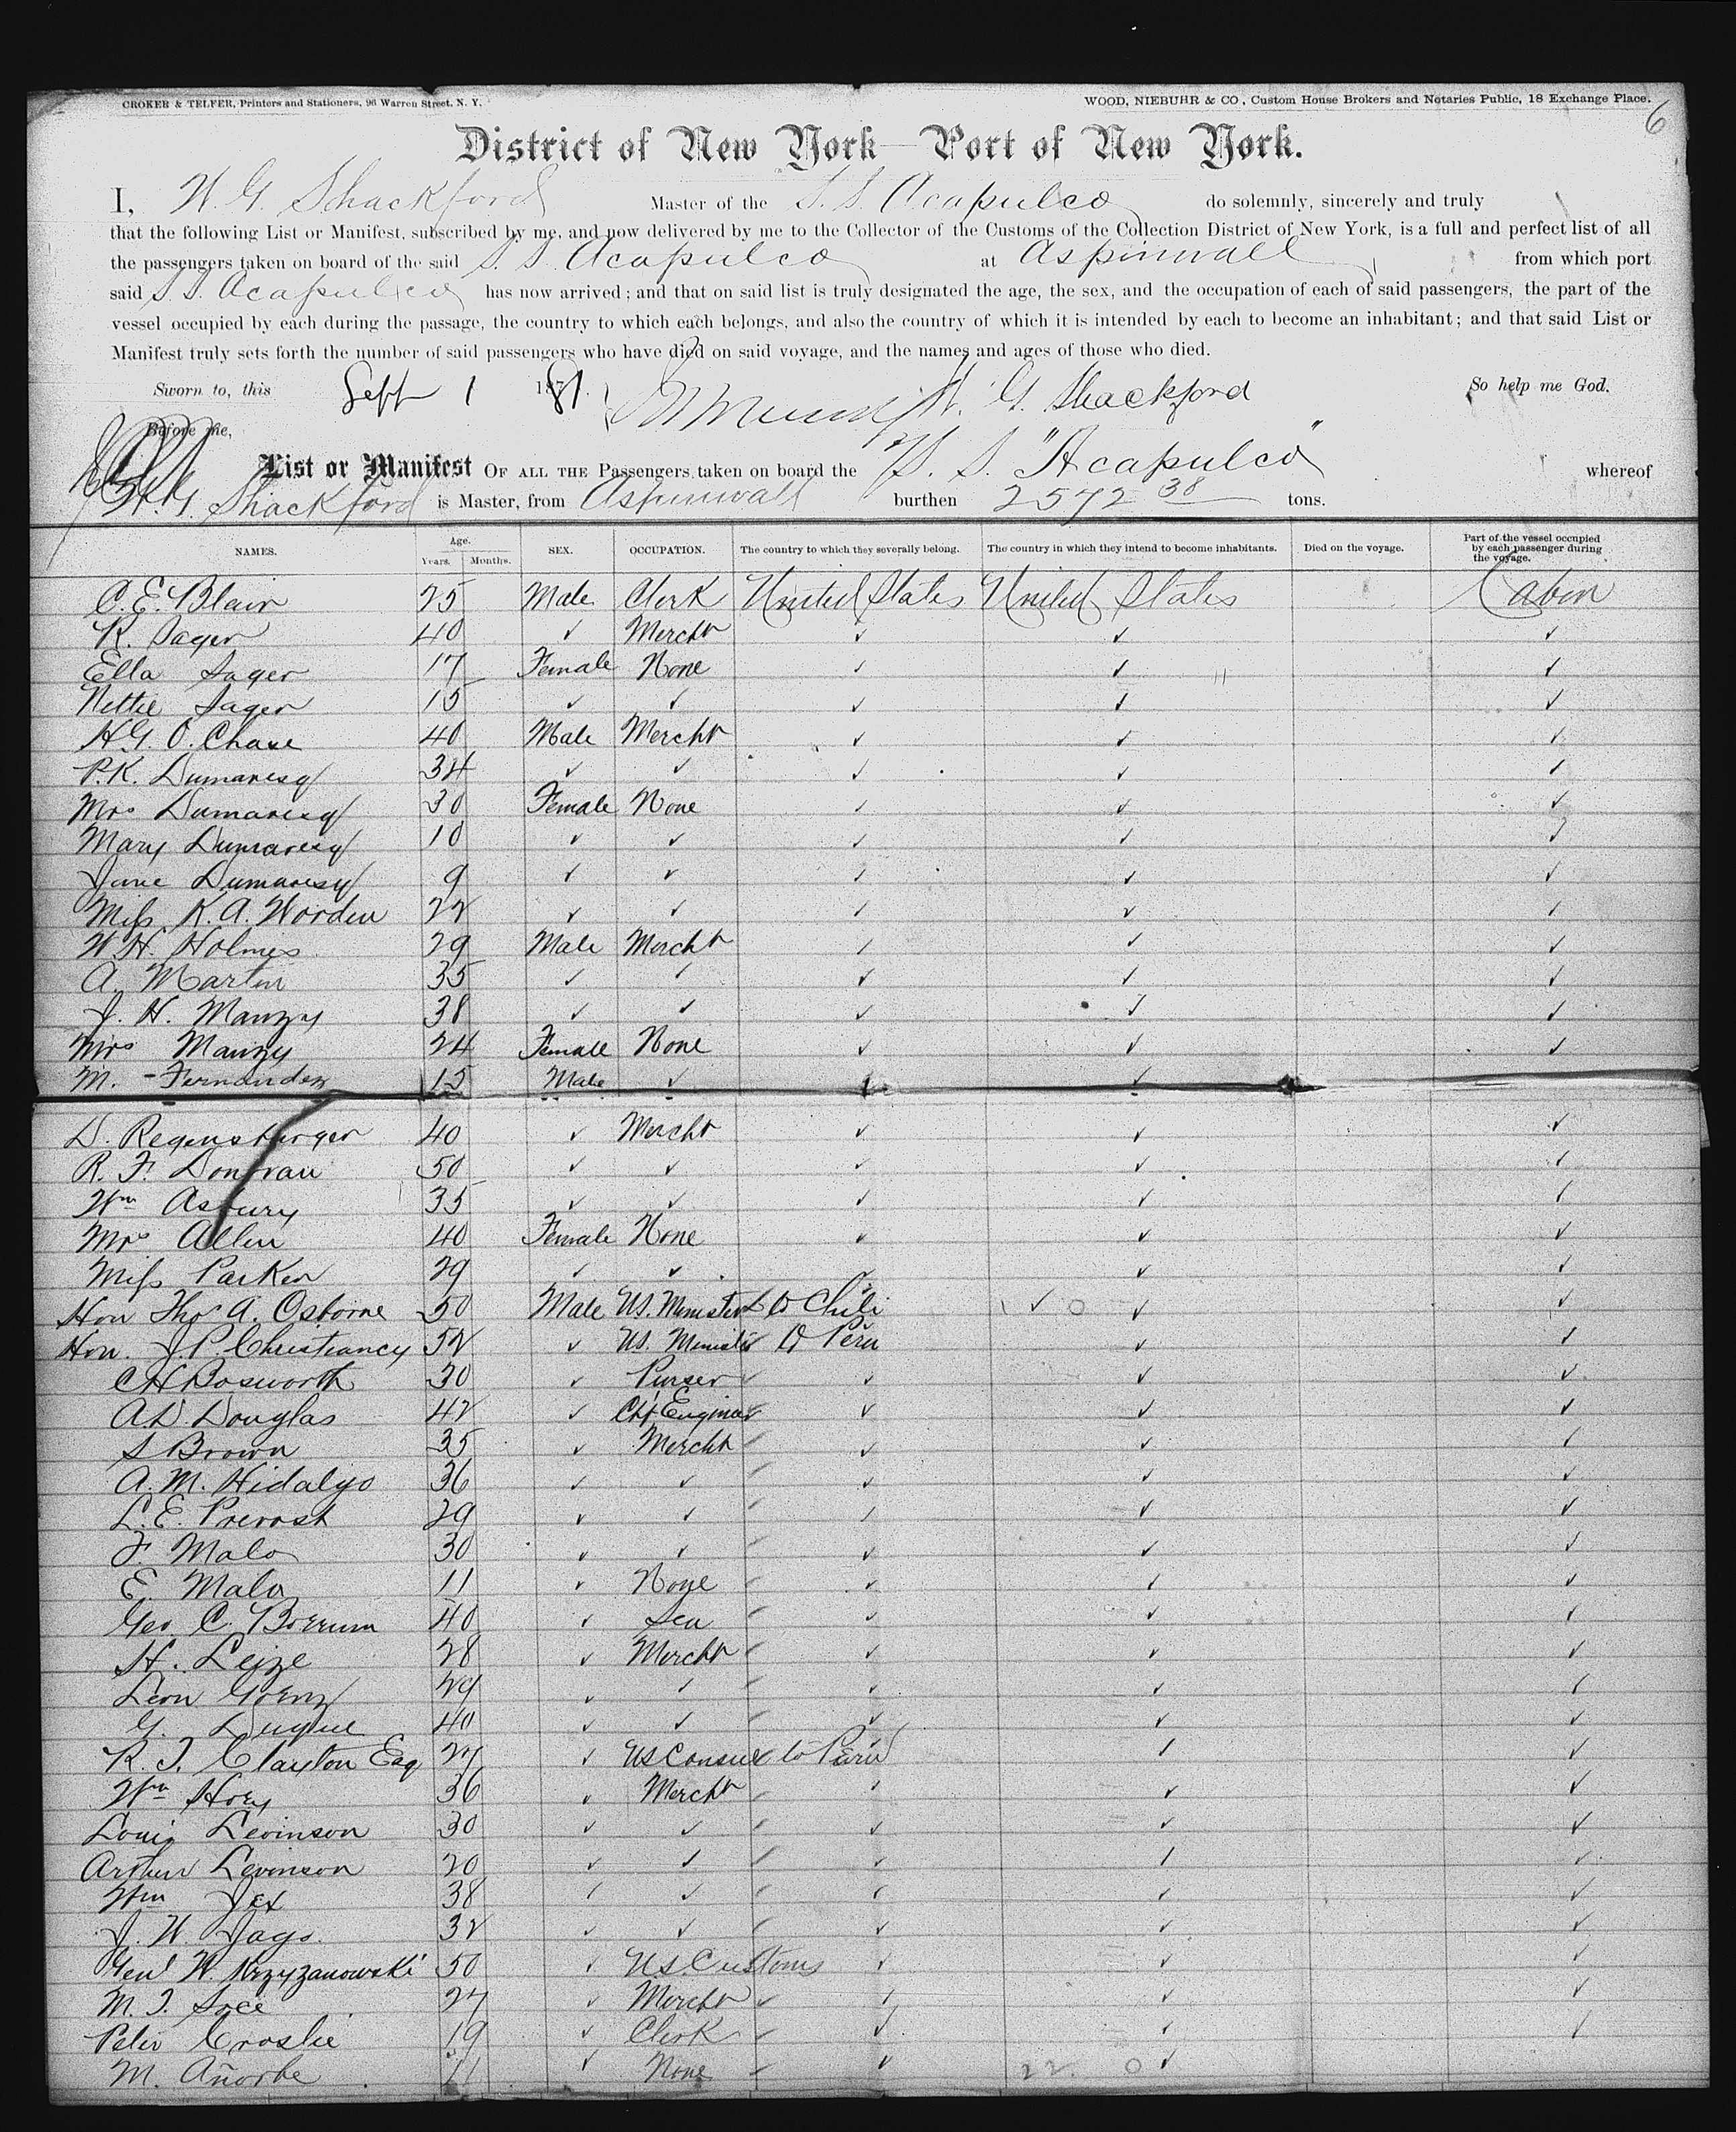 CROKER & TELFER, Printers and Stationers, 96 Warren Street, N. Y. WOOD, NIEBUHR & CO, Custom House Brokers and Notaries Public, 18 Exchange Place.
6
District of New York—Port of New York.
I, W. G. Shackford Master of the S. S. Acapulco do solemnly, sincerely and truly
that the following List or Manifest, subscribed by me, and now delivered by me to the Collector of the Customs of the Collection District of New York, is a full and perfect list of all
the passengers taken on board of the said S. S. Acapulco at Aspinwall from which port
said S. S. Acapulco has now arrived; and that on said list is truly designated the age, the sex, and the occupation of each of said passengers, the part of the
vessel occupied by each during the passage, the country to which each belongs, and also the country of which it is intended by each to become an inhabitant; and that said List or
Manifest truly sets forth the number of said passengers who have died on said voyage, and the names and ages of those who died.
Sworn to, this Sept 1 1881. W. G. Shackford So help me God.
Before me,
List or Manifest OF ALL THE Passengers taken on board the S. S. "Acapulco" whereof
W. G. Shackford is Master, from Aspinwall burthen 2572 38 tons.
NAMES. Age. Years. Months. SEX. OCCUPATION. The country to which they severally belong. The country in which they intend to become inhabitants. Died on the voyage. Part of the vessel occupied by each passenger during the voyage.
C. E. Blair 25 Male Clerk United States United States Cabin
K. Sager 40 ✓ Mercht ✓ ✓ ✓
Ella Sager 17 Female None ✓ ✓ ✓
Nettie Sager 15 ✓ ✓ ✓ ✓ ✓
H. G. O. Chase 40 Male Mercht ✓ ✓ ✓
P. K. Dumaresq 34 ✓ ✓ ✓ ✓ ✓
Mrs Dumaresq 30 Female None ✓ ✓ ✓
Mary Dumaresq 10 ✓ ✓ ✓ ✓ ✓
Jane Dumaresq 9 ✓ ✓ ✓ ✓ ✓
Miss K. A. Worden 22 ✓ ✓ ✓ ✓ ✓
W. H. Holmes 29 Male Mercht ✓ ✓ ✓
A. Martin 35 ✓ ✓ ✓ ✓ ✓
J. H. Manzy 38 ✓ ✓ ✓ ✓ ✓
Mrs Manzy 24 Female None ✓ ✓ ✓
M. Fernandez 15 Male ✓ ✓
D. Regensburger 40 ✓ Mercht ✓ ✓ ✓
R. F. Donovan 50 ✓ ✓ ✓ ✓ ✓
Wm Asbury 35 ✓ ✓ ✓ ✓ ✓
Mrs Allen 40 Female None ✓ ✓ ✓
Miss Parker 29 ✓ ✓ ✓ ✓ ✓
Hon Thos A. Osborne 50 Male U.S. Minister to Chili ✓ ✓ ✓
Hon. J. P. Christiancy 52 ✓ U.S. Minister to Peru ✓ ✓
C H Bosworth 30 ✓ Purser ✓ ✓ ✓ ✓
A. D. Douglas 42 ✓ Chf Engineer ✓ ✓ ✓
S Brown 35 ✓ Mercht ✓ ✓ ✓ ✓
A. M. Hidalgo 36 ✓ ✓ ✓ ✓ ✓ ✓
L. E. Prevost 29 ✓ ✓ ✓ ✓ ✓ ✓
F. Malo 30 ✓ ✓ ✓ ✓ ✓ ✓
E. Malo 11 ✓ None ✓ ✓ ✓ ✓
Geo. C. Boerum 40 ✓ Sea ✓ ✓ ✓ ✓
H. Leize 28 ✓ Mercht ✓ ✓ ✓ ✓
Leon Goenz 29 ✓ ✓ ✓ ✓ ✓ ✓
G. Duque 40 ✓ ✓ ✓ ✓ ✓ ✓
R. T. Clayton Esq 27 ✓ US Consul to Peru ✓ ✓
Wm Hoey 36 ✓ Mercht ✓ ✓ ✓ ✓
Louis Levinson 30 ✓ ✓ ✓ ✓ ✓ ✓
Arthur Levinson 20 ✓ ✓ ✓ ✓ ✓ ✓
Wm Jex 38 ✓ ✓ ✓ ✓ ✓ ✓
J. W. Jago 32 ✓ ✓ ✓ ✓ ✓ ✓
Genl W. Krzyzanowski 50 ✓ U.S. Customs ✓ ✓ ✓
M. T. 27 ✓ Mercht ✓ ✓ ✓ ✓
Peter Croslie 19 ✓ Clerk ✓ ✓ ✓ ✓
M. Añorbe 11 ✓ None ✓ ✓ 22. ✓